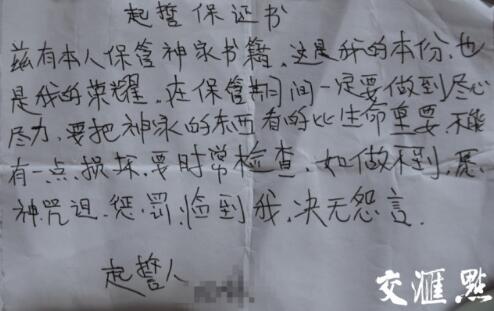 起誓保证书
兹有本人保管神家书籍。这是我的本份,也
是我的荣耀。在保管期间一定要做到尽心
尽力,要把神家的东西看的比生命重要,不能
有一点损坏,要时常检查,如做不到,愿
神咒诅、惩罚、临到我,决无怨言.
起誓人
交汇點